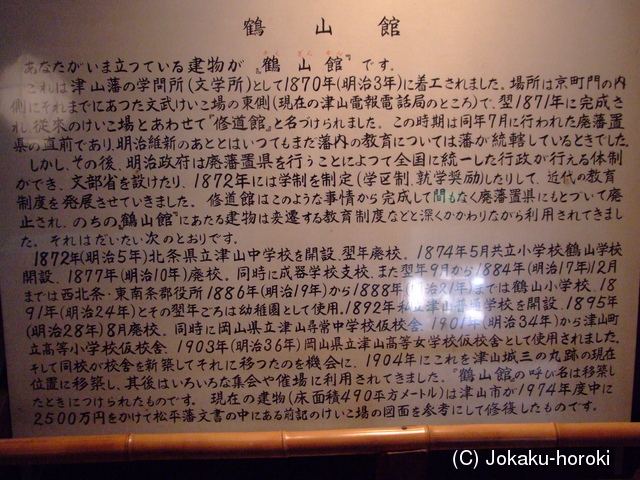 鶴山館
あなたがいま立つている建物が〝鶴山館〟です。
これは津山藩の学問所(文学所)として1870年(明治3年)に着工されました。場所は京町門の内
側にそれまでにあつた文武けいこ場の東側(現在の津山電報電話局のところ)で、翌1871年に完成さ
れ、従来のけいこ場とあわせて『修道館』と名づけられました。この時期は同年7月に行われた廃藩置
県の直前であり、明治維新のあととはいつてもまた藩内の教育については藩が統轄しているときでした。
しかし、その後、明治政府は廃藩置県を行うことによつて全国に統一した行政が行える体制
ができ、文部省を設けたり、1872年には学制を制定(学区制、就学奨励)したりして、近代の教育
制度を発展させていきました。修道館はこのような事情から完成して間もなく廃藩置県にもとづいて廃
止され、のちの〝鶴山館〟にあたる建物は変遷する教育制度などと深くかかわりながら利用されてきまし
た。それはだいたい次のとおりです。
1872年(明治5年)北条県立津山中学校を開設、翌年廃校。1874年5月共立小学校鶴山学校
開設、1877年(明治10年)廃校。同時に成器学校支校、また翌年9月から1884年(明治17年)12月
までは西北条・東南条郡役所1886年(明治19年)から1888年(明治21年)までは鶴山小学校、18
91年(明治24年)とその翌年ごろは幼稚園として使用。1892年私立津山普通学校を開設、1895年
(明治28年)8月廃校。同時に岡山県立津山尋常中学校仮校舎、1901年(明治34年)から津山町
立高等小学校仮校舎、1903年(明治36年)岡山県立津山高等女学校仮校舎として使用されました。
そして同校が校舎を新築してそれに移つたのを機会に、1904年にこれを津山城三の丸跡の現在
位置に移築し、其後はいろいろな集会や催場に利用されてきました。〝鶴山館〟の呼び名は移築し
たときにつけられたものです。現在の建物(床面積490平方メートル)は津山市が1974年度中に
2500万円をかけて松平藩文書の中にある前記のけいこ場の図面を参考にして修復したものです。
(C) Jokaku-horoki